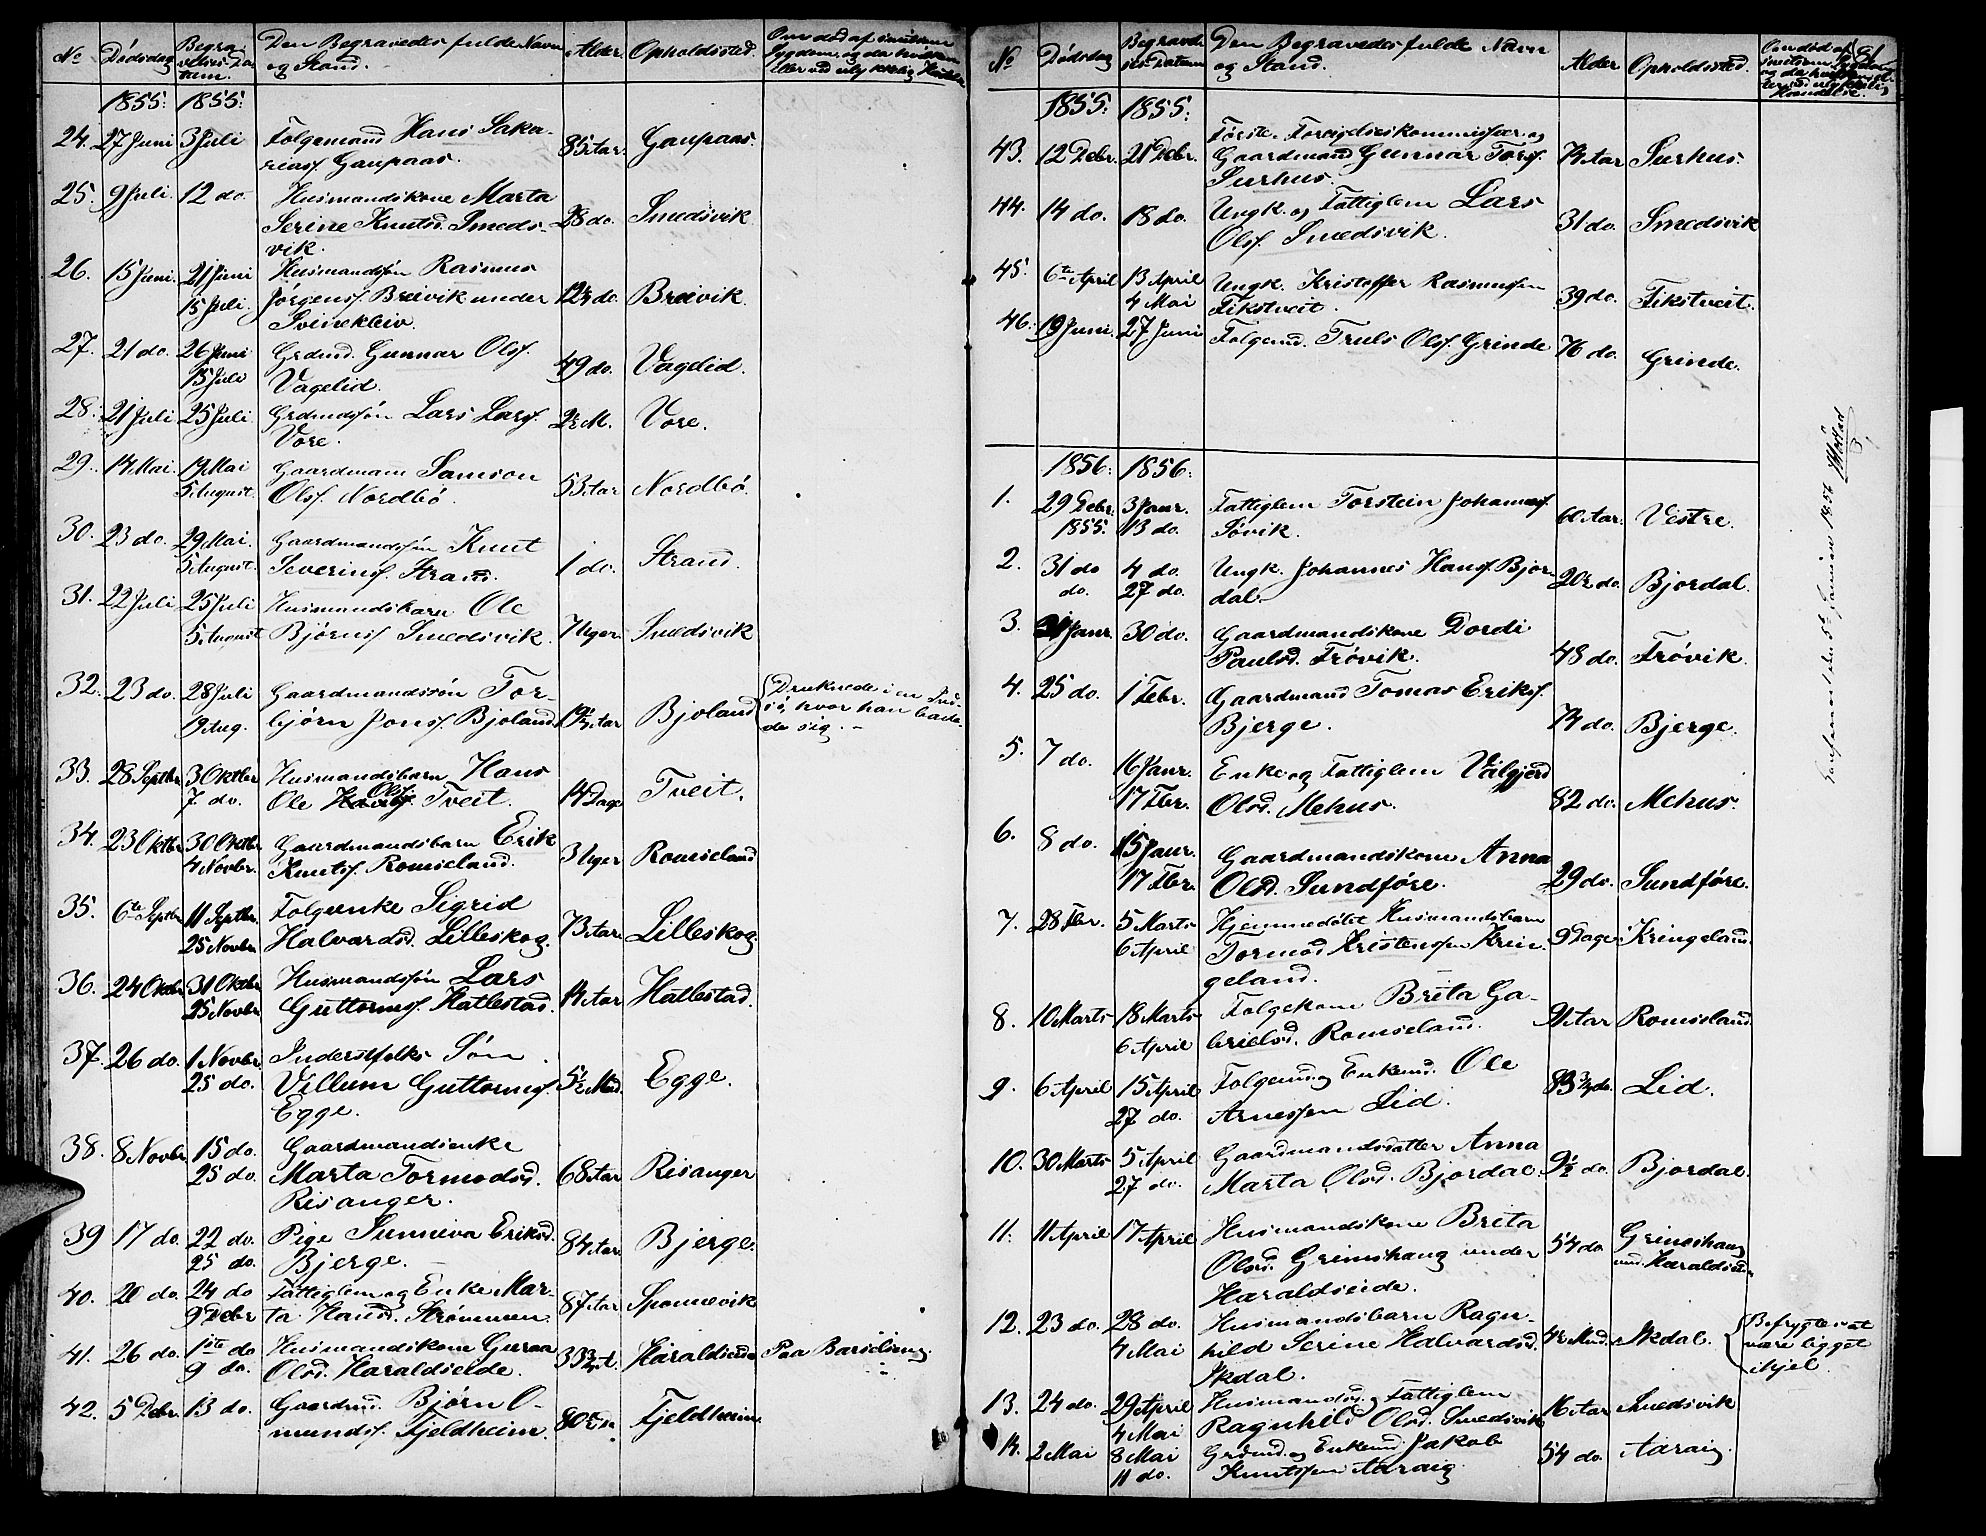 No Dødsdag Begravelses-Datum. Den Begravedes fulde Navn og Stand. Alder. Opholdssted. Om død af smitsom Sygdom, og da hvilken
1855. 1855.
24. 27 Juni 3 Juli Folgemand Hans Saka- 85 Aar. Gaupaas.
riasf. Gaupaas.
25. 9 Juli. 12 do. Husmandskone Marta 28 do. Smedsvik
Serine Knutsd. Smeds-
vik.
26. 15 Juni. 21 Juni Husmandssøn Rasmus Breivik.
15 Juli. Jørgensf. Breivik under
Svinekleiv.
27. 21 do. 26 Juni Grdmd. Gunnar Olsf. 49 do. Vagelid.
15 Juli Vagelid.
28. 21 Juli 25 Juli Grdmdssøn Lars Larsf. Vore.
Vore.
29. 14 Mai. 19 Mai Gaardmann Samson 53 Aar Nordbø.
5 August. Olsf. Nordbø.
30. 23 do. 29 Mai. Gaardmandssøn Knut 1 do. Strand.
5 August. Severinsf. Strand.
31. 22 Juli 25 Juli Husmandsbarn Ole 7 Uger Smedsvik
5 August Bjørnsf. Smedsvik.
32. 23 do. 28 Juli Gaardmandssøn Tor- Bjoland Druknede i en Ind-
19 Aug. bjørn Jonsf. Bjoland sø, hvor han bade-
de sig. -
33. 28 Septbr 3 Oktbr Husmandsbarn Hans 14 Dage Tveit.
7 do. Ole Olsf. Tveit.
34. 23 Oktbr 30 Oktbr. Gaardmandsbarn Erik 3 Uger Romseland
4 Novbr. Knutsf. Romseland.
35. 6te Septbr 11 Septbr. Folgeenke Sigrid 73 Aar. Lilleskog.
25 Novbr Halvardsd. Lilleskog.
36. 24 Oktbr 31 Oktbr. Husmandssøn Lars 14 Aar Hatlestad.
25 Novbr Guttormsf. Hatlestad.
37. 26 do. 1 Novbr Inderstfolks Søn 5½ Mnd. Egge.
25 do. Villum Guttormsf.
Egge.
38. 8 Novbr. 15 do. Gaardmandsenke 68 Aar Risanger
25 do. Marta Tormodsd.
Risanger.
39 17 do. 22 do. Pige Sunneva Eriksd. 84 Aar. Bjerge.
25 do. Bjerge.
40. 20 do. 24 do Fattiglem og Enke Mar- 87 Aar Sponnevik
9 Debr ta Hansd. Strømmen.
41. 26 do. 1ste do Husmandskone Guroa Haraldseide Paa Barselseng.
9 do. Olsd. Haraldseide.
42. 5 Debr. 13 do. Gaardmd. Bjørn O- Fjeldheim.
mundsf. Fjeldheim.
No Dødsdag Begravelses-Datum Den Begravedes fulde Navn og Stand. Alder Opholdssted.
1855. 1855.
43. 12 Debr. 21 Debr. Første Forligelseskommissær og
Gaardmand Gunnar Torsf. 74 Aar Surhus.
Surhus.
44. 14 do. 18 do. Ungk. og Fattiglem Lars 31 do. Smedsvik
Olsf. Smedsvik.
45. 6te April 13 April Ungk. Kristoffer Rasmussen 39 do. Fikstveit.
4 Mai Fikstveit.
46. 19 Juni. 27 Juni Folgemd. Truls Olsf. Grinde 76 do. Grinde.
1856. 1856.
1. 29 Debr. 3 Janr. Fattiglem Torstein Johannesf. 60 Aar. Vestre.
1855. 13 do. Søvik.
2. 31 do 4 do. Ungk. Johannes Hansf. Bjor- Bjordal.
do. 27 do. dal.
3. Janr. 30 do. Gaardmandskone Dordi 48 do. Frøvik.
Paulsd. Frøvik.
4. 25 do. 1 Febr. Gaardmand Tomas Eriksf. 74 do. Bjerge.
Bjerge.
5. 7 do. 16 Janr. Enke og Fattiglem Valgjerd 82 do. Mehus.
17 Fbr. Olsd. Mehus.
6. 8 do. 15 Janr. Gaardmandskone Anna 29 do. Sundføre.
17 Fbr. Olsd. Sundføre.
7. 28 Fbr. 5 Marts Hjemmedøbt Husmandsbarn 9 Dage Kringeland.
6 April Tormod Kristenssen Krin-
geland.
8. 10 Marts 18 Marts Folgekone Brita Ga- Romseland.
6 April brielsd. Romseland.
9. 6 April 15 April Folgemd. og Enkemd. Ole 83¾ do. Lid.
27 do. Arnessen Lid.
10. 30 Marts 5 April Gaardmandsdatter Anna 9½ do. Bjordal.
27 do. Marta Olsd. Bjordal.
11. 11 April 17 April Husmandskone Brita 54 do. Grimshaug
Olsd. Grimshaug under und. Haraldseide
Haraldseide.
12. 23 do. 28 do. Husmandsbarn Ragn- Økdal. Befrygtes at
4 Mai hild Serine Halvardsd. være ligget
Økdal. ihjel.
13. 24 do. 29 April Fattiglem 16 Aar Smedsvik
4 Mai Ragnhild Olsd. Smedsvik
14. 2 Mai 8 Mai Grdmd. og Enkemd. Jakob 54 do. Aaraig.
11 do. Knutssen Aaraig.